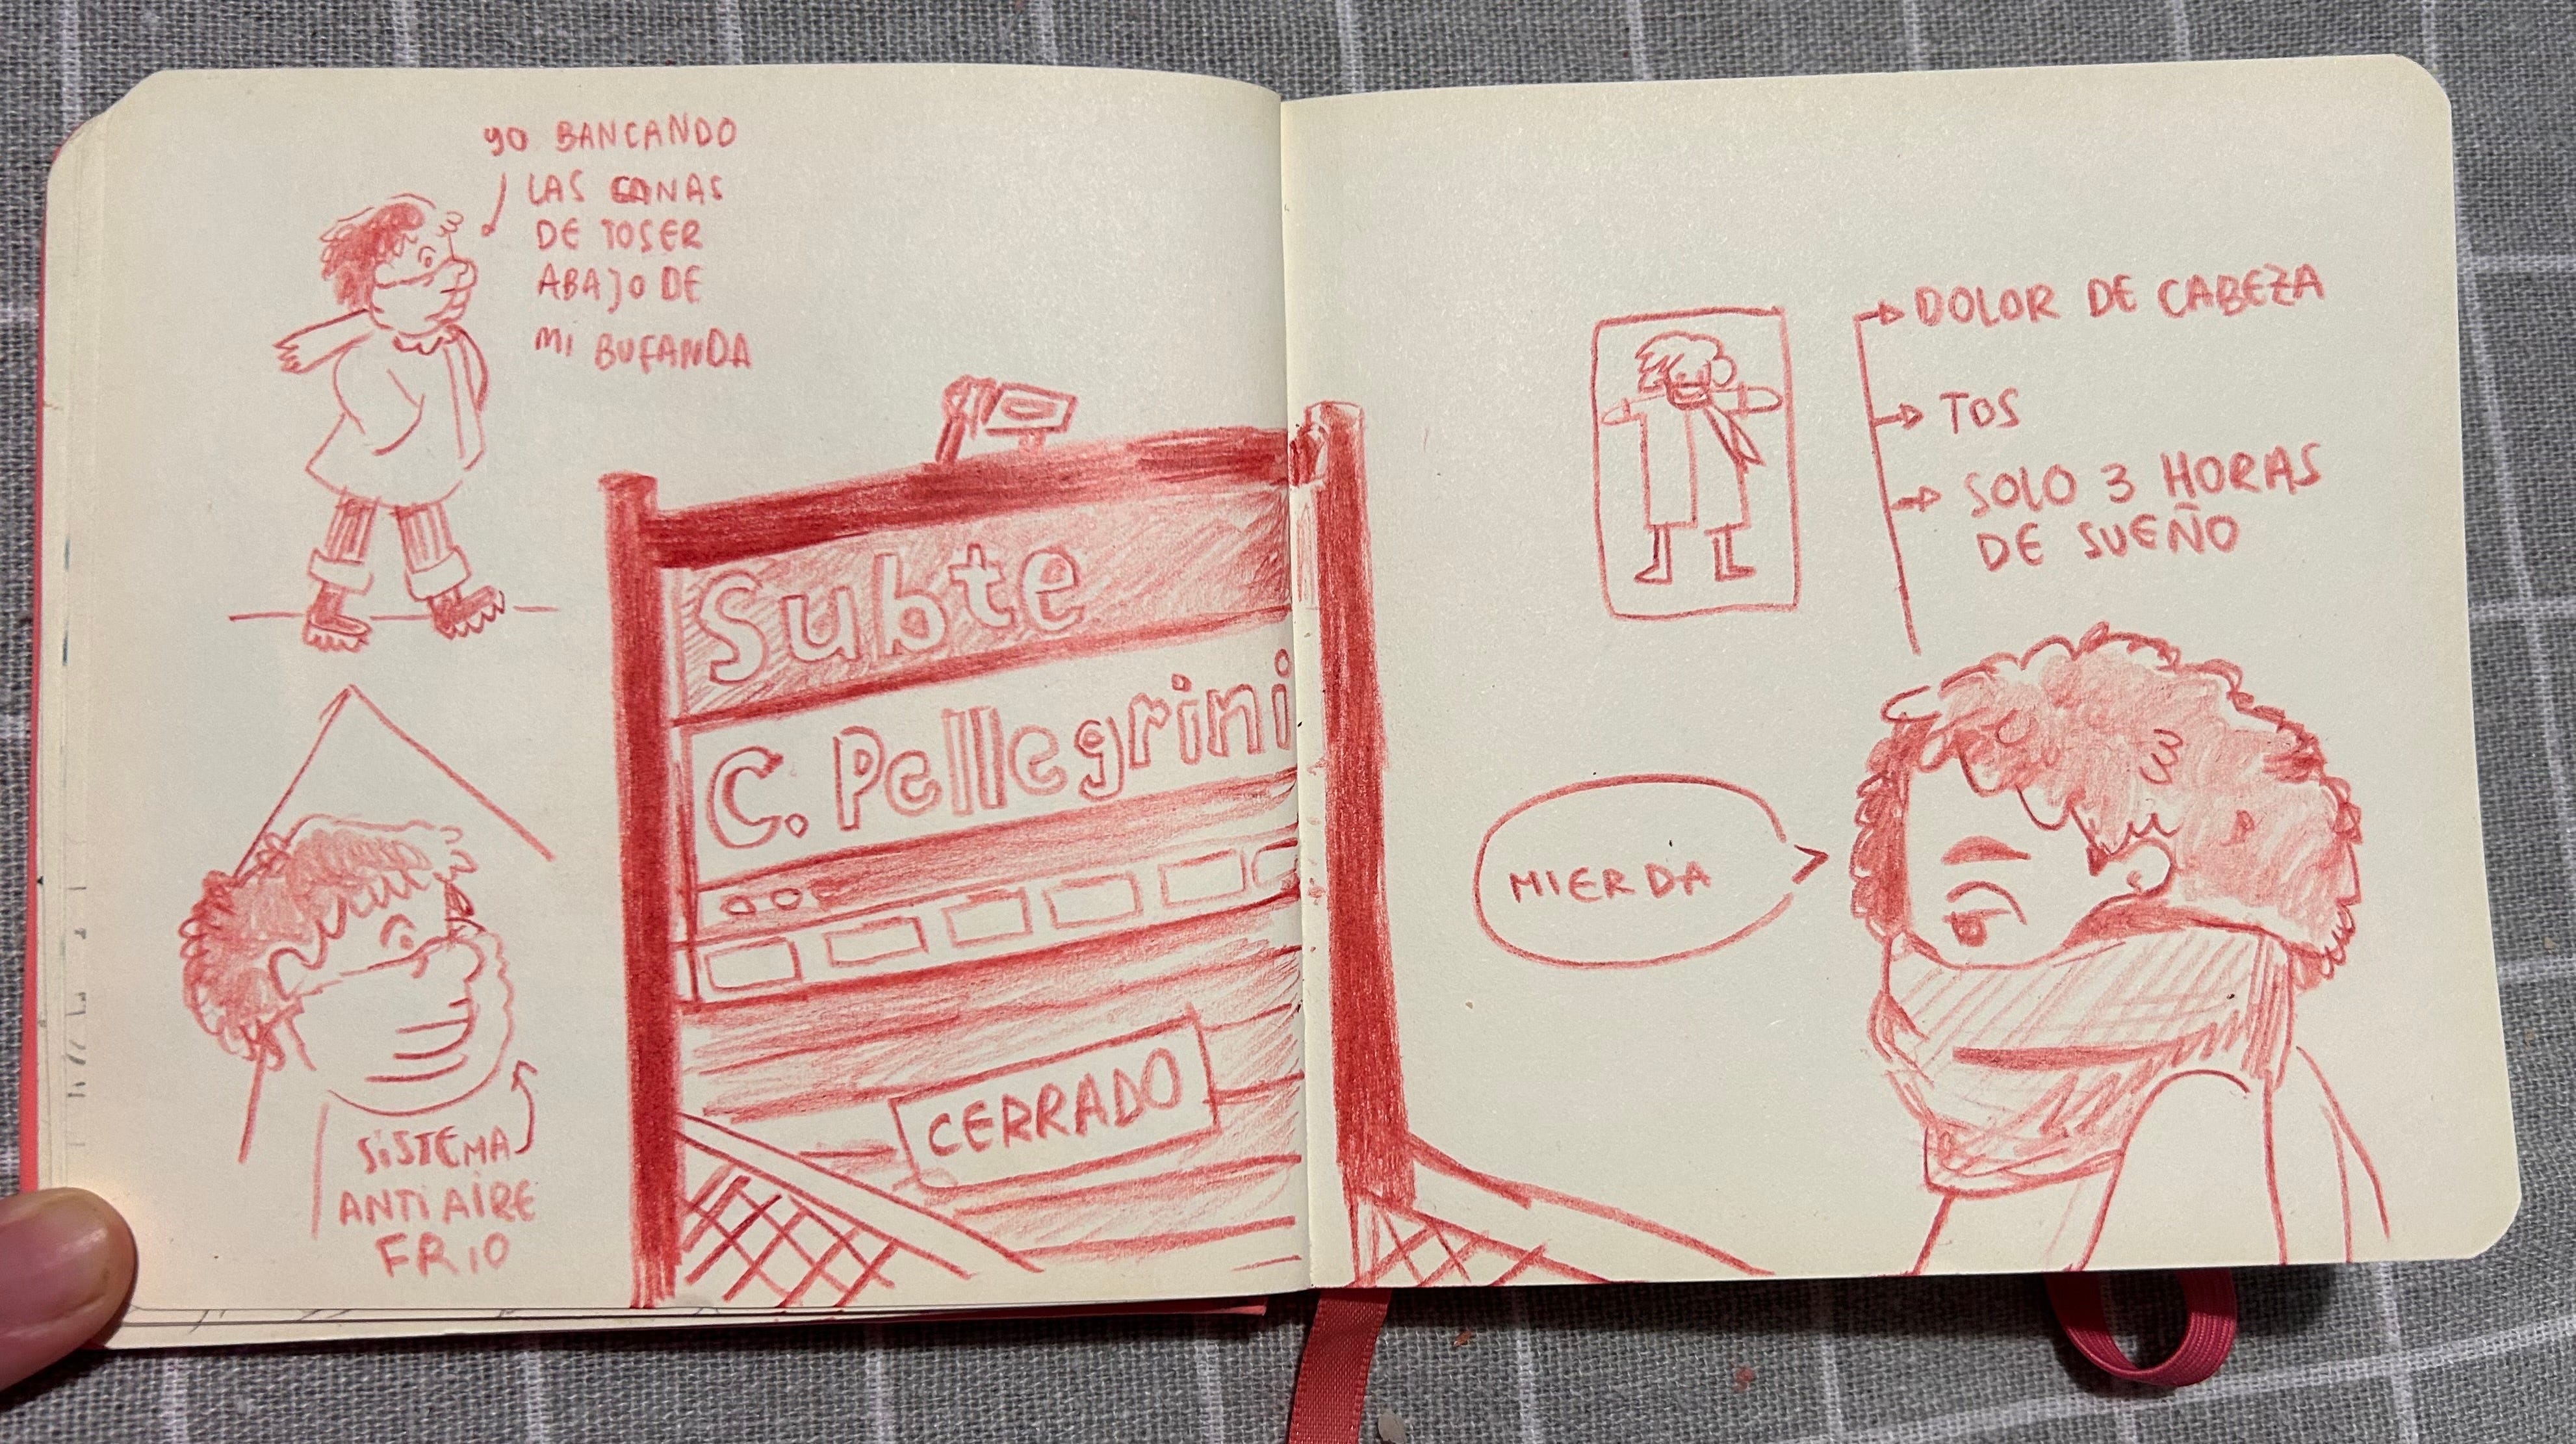 yo BANCANDO
LAS GANAS
DE TOSER
ABAJO DE
MI BUFANDA
SISTEMA
ANTI AIRE
FRIO
Subte
C. Pellegrini
CERRADO
DOLOR DE CABEZA
TOS
SOLO 3 HORAS
DE SUEÑO
MIERDA